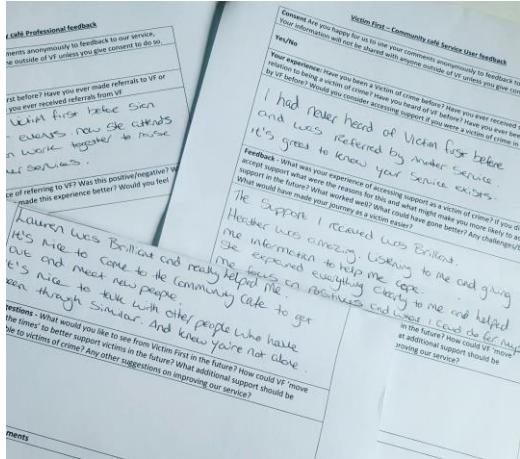 café Professional feedback
comments anonymously to feedback to our service,
outside of VF unless you give consent to do so.
first before? Have you ever made referrals to VF or
you ever received referrals from VF
Victim first before Sian
events. now she attends
work together to raise
services.
ce of referring to VF? Was this positive/negative? W
made this experience better? Would you feel
Victim First – Community café Service User feedback
Consent Are you happy for us to use your comments anonymously to feedback to
Your information will not be shared with anyone outside of VF unless you give con
Yes/No
Your experience: Have you been a victim of crime before? Have you ever received
relation to being a victim of crime? Have you heard of VF before? Have you ever bee
by VF before? Would you consider accessing support if you were a victim of crime in
I had never heard of Victim first before
and was referred by another service.
it's great to know your service exists.
Feedback - What was your experience of accessing support as a victim of crime? If you di
accept support what were the reasons for this and what might make you more likely to ac
support in the future? What worked well? What could have gone better? Any challenges/b
What would have made your journey as a victim easier?
The Support I received was Brilliant.
Heather was amazing. Listening to me and giving
me information to help me cope.
She explained everything clearly to me and helped
me focus on positives and what I could do for
Lauren was Brilliant and really helped me.
It's nice to come to the Community Cafe to get
out and meet new people.
it's nice to talk with other people who have
been through Similar. And know you're not alone.
gestions - What would you like to see from Victim First in the future? How could VF 'move
the times' to better support victims in the future? What additional support should be
ble to victims of crime? Any other suggestions on improving our service?
in the future? How could VF 'move
at additional support should be
roving our service?
mments